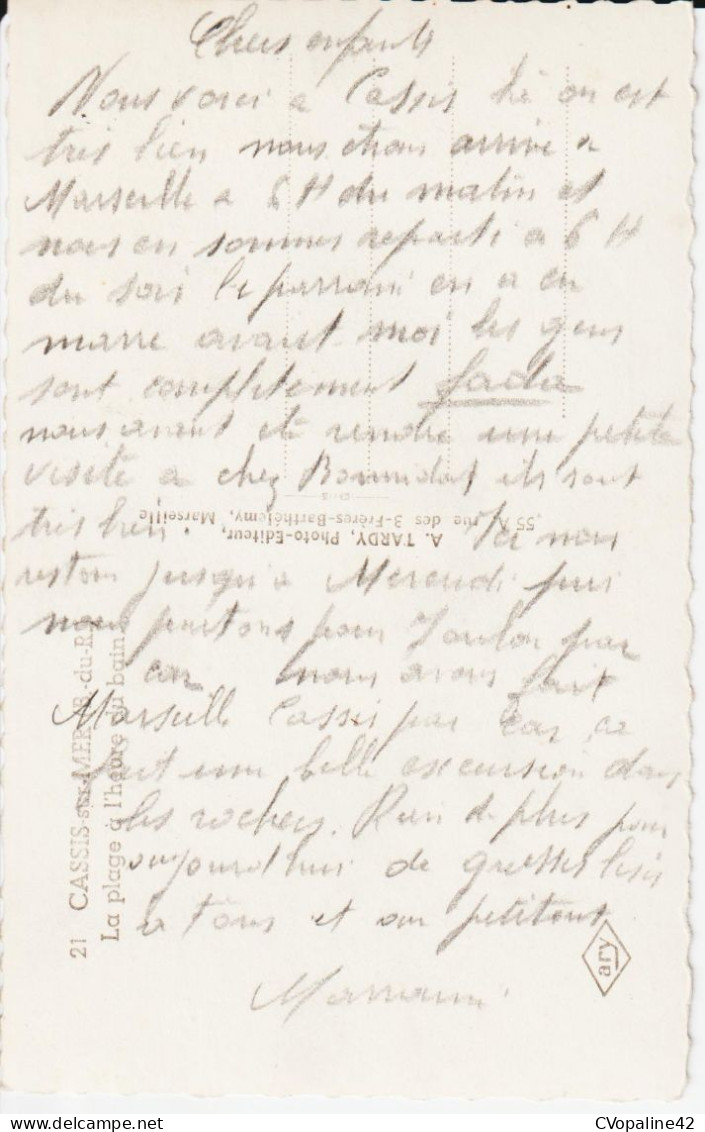 Chers enfants
Nous voici a Cassis on est
tres bien nous etions arrive a
Marseille a 6 H du matin et
nous en sommes reparti a 6 H
du soir le parrain en a en
marre avant moi les gens
sont completement fada
nous avons ete rendre une petite
visite a chez ils sont
tres bien. Ici nous
restons jusqu'a Mercredi puis
nous partons pour Toulon par
car nous avons fait
Marseille Cassis par car ca
fait une belle excursion dans
les rochers. Rien de plus pour
aujourd'hui de grosses bises
a tous et au petitout
Marraine
55 A, rue des 3-Frères-Barthélemy, Marseille
A. TARDY, Photo-Editeur,
21 CASSIS-sur-MER
La plage à l'heure du bain
ary
© CVopaline42